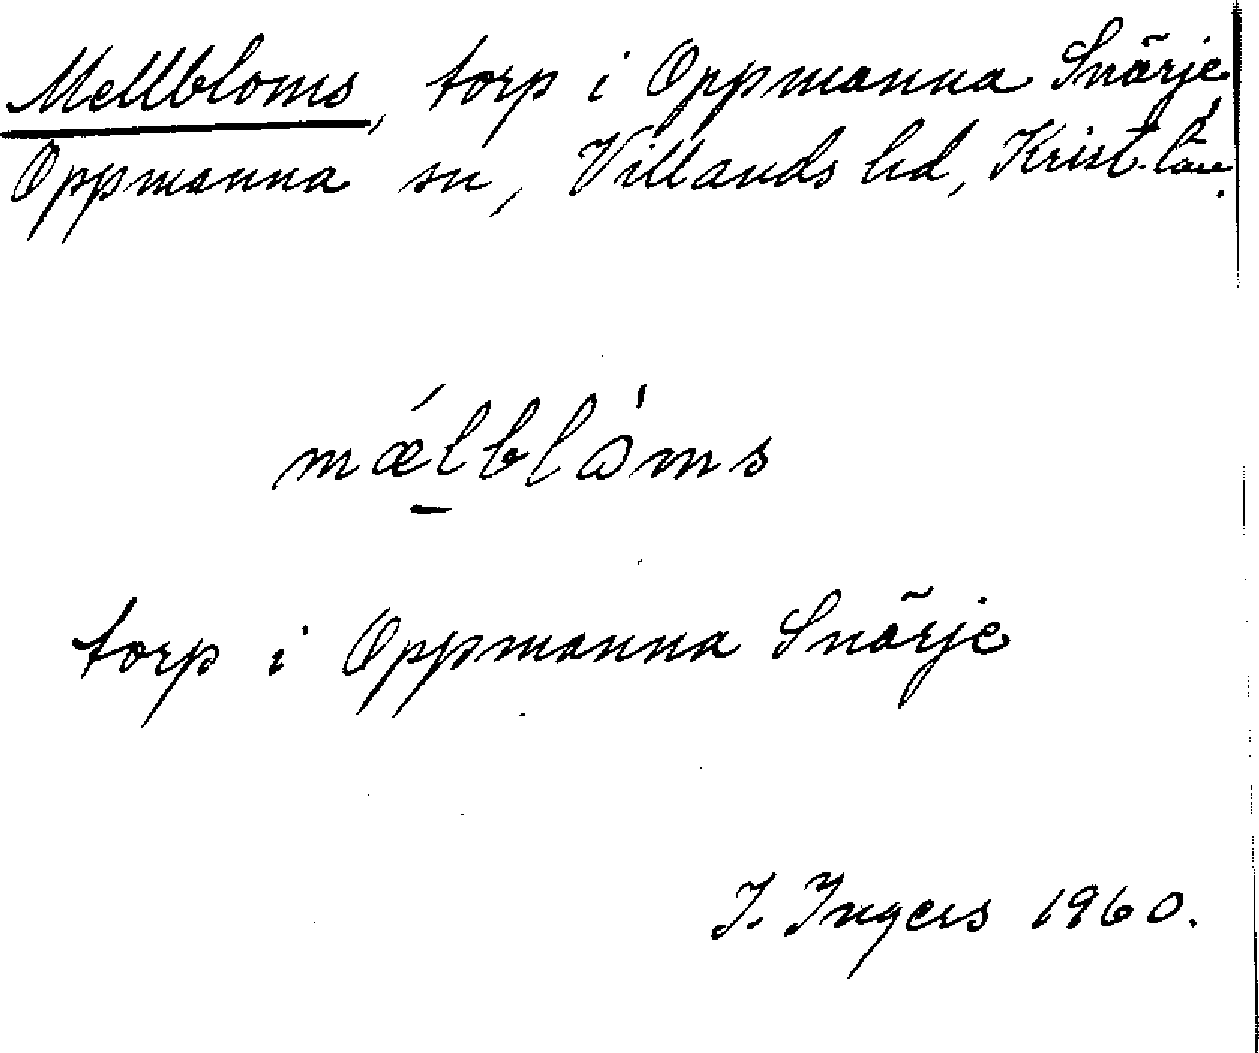 Mellbloms, torp i Oppmanna Snärje,
Oppmanna sn, Villands hd, Krist. län.
mǽlblòms
torp i Oppmanna Snärje
I. Ingers 1960.